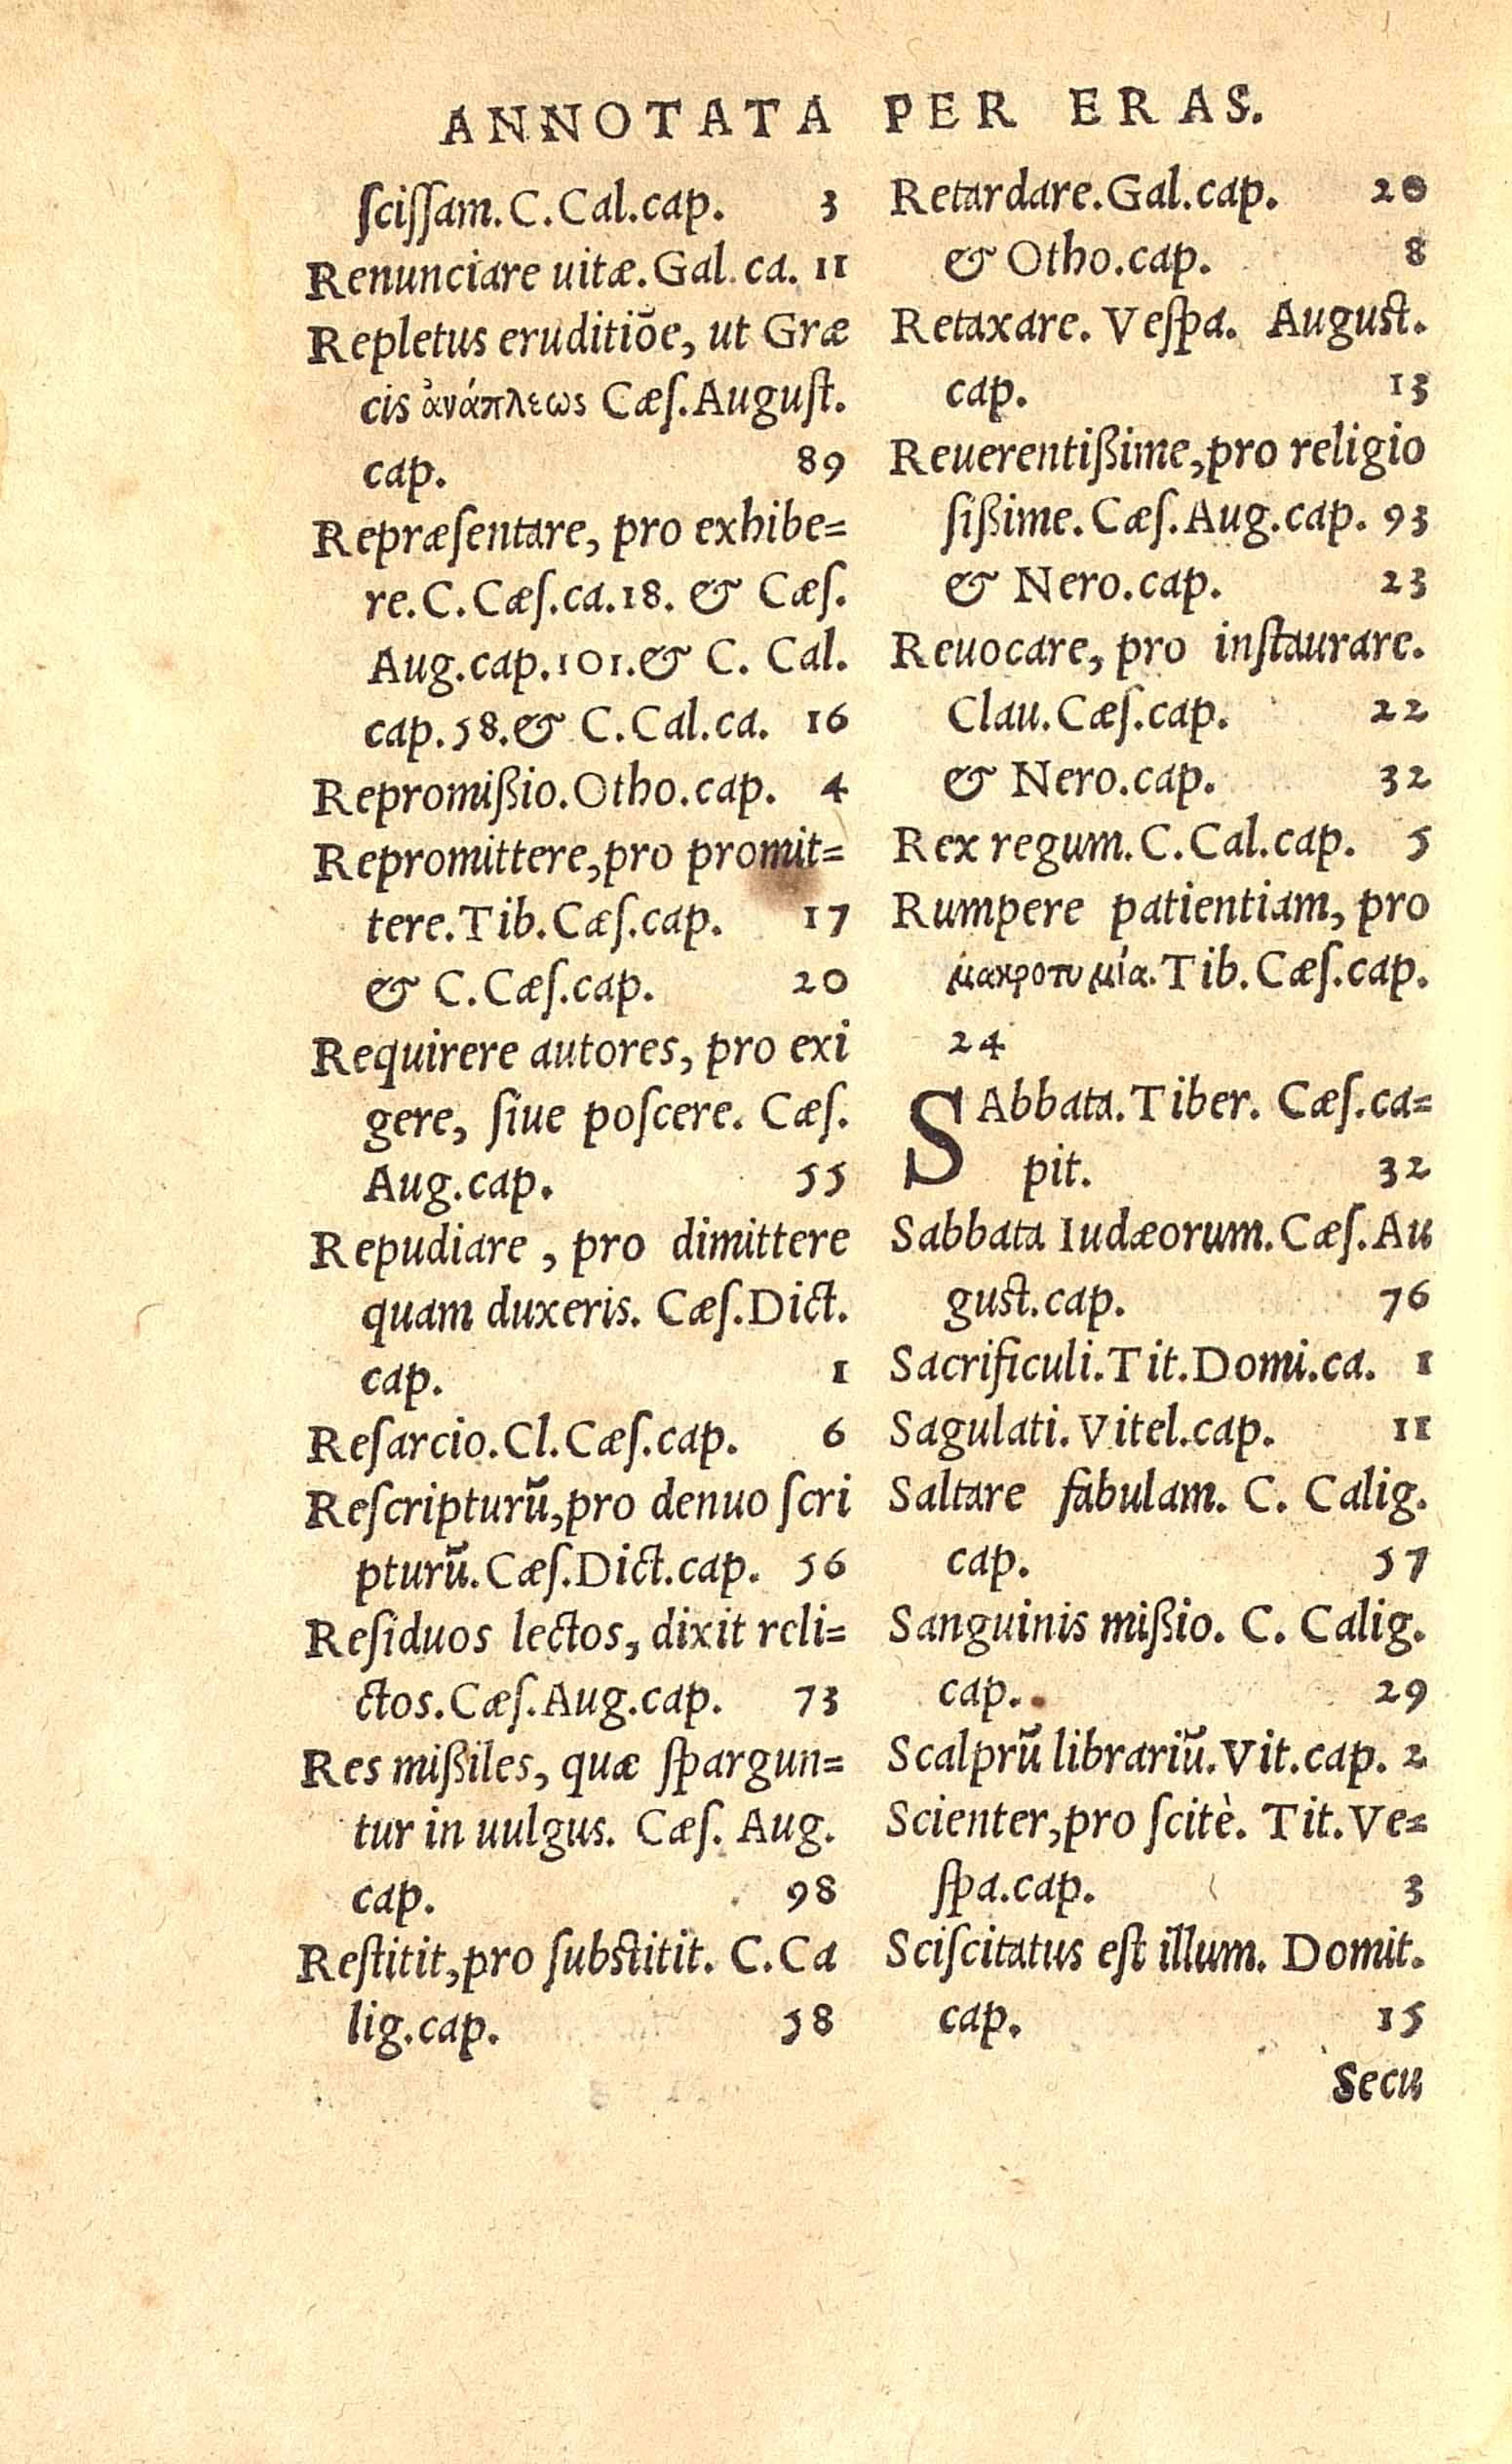 ANNOTATA PER ERAS.
ſciſſam. C. Cal. cap. 3
Renunciare uitæ. Gal. ca. 11
Repletus eruditiōe, ut Græ
cis ἀνάπλεως Cæſ. Auguſt.
cap. 89
Repræſentare, pro exhibe=
re. C. Cæſ. ca. 18. & Cæſ.
Aug. cap. 101. & C. Cal.
cap. 58. & C. Cal. ca. 16
Repromißio. Otho. cap. 4
Repromittere, pro promit=
tere. Tib. Cæſ. cap. 17
& C. Cæſ. cap. 20
Requirere autores, pro exi
gere, ſiue poſcere. Cæſ.
Aug. cap. 55
Repudiare, pro dimittere
quam duxeris. Cæſ. Dict.
cap. 1
Reſarcio. Cl. Cæſ. cap. 6
Reſcripturū, pro denuo ſcri
pturū. Cæſ. Dict. cap. 56
Reſiduos lectos, dixit reli=
ctos. Cæſ. Aug. cap. 73
Res mißiles, quæ ſpargun=
tur in uulgus. Cæſ. Aug.
cap. 98
Reſtitit, pro ſubſtitit. C. Ca
lig. cap. 58
Retardare. Gal. cap. 20
& Otho. cap. 8
Retaxare. Veſpa. Auguſt.
cap. 13
Reuerentißime, pro religio
ſißime. Cæſ. Aug. cap. 93
& Nero. cap. 23
Reuocare, pro inſtaurare.
Clau. Cæſ. cap. 22
& Nero. cap. 32
Rex regum. C. Cal. cap. 5
Rumpere patientiam, pro
μακροτυμία. Tib. Cæſ. cap.
24
SAbbata. Tiber. Cæſ. ca=
pit. 32
Sabbata Iudæorum. Cæſ. Au
guſt. cap. 76
Sacrificuli. Tit. Domi. ca. 1
Sagulati. Vitel. cap. 11
Saltare fabulam. C. Calig.
cap. 57
Sanguinis mißio. C. Calig.
cap. 29
Scalprū librariū. Vit. cap. 2
Scienter, pro ſcitè. Tit. Ve=
ſpa. cap. 3
Sciſcitatus eſt illum. Domit.
cap. 15
Secu